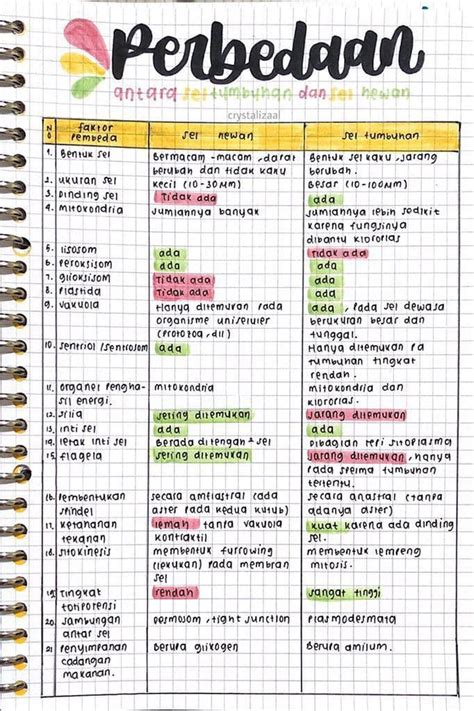 Perbedaan
antara sel tumbuhan dan sel hewan
crystalizaa
NO faktor pembeda sel hewan sel tumbuhan
1. Bentuk sel Bermacam-macam, dapat berubah dan tidak kaku Bentuk sel kaku, jarang berubah.
2. ukuran sel kecil (10-30NM) Besar (10-100NM)
3. Dinding sel Tidak ada ada
4. mitokondria jumlahnya banyak jumlahnya lebih sedikit karena fungsinya dibantu kloroplas
5. lisosom ada Tidak ada
6. Peroksisom ada ada
7. glioksisom Tidak ada ada
8. Plastida Tidak ada ada
9. vakuola Hanya ditemukan pada organisme uniseluler (protozoa, dll) ada, pada sel dewasa berukuran besar dan tunggal.
10. sentriol/sentrosom ada Hanya ditemukan pa tumbuhan tingkat rendah.
11. organel pengha-sil energi. mitokondria mitokondria dan kloroplas.
12. silia sering ditemukan jarang ditemukan
13. inti sel ada ada
14. letak inti sel Berada ditengah² sel Dibagian tepi sitoplasma
15. flagela sering ditemukan jarang ditemukan, hanya pada sperma tumbuhan tertentu.
16. Pembentukan spindel secara amfiastral (ada aster pada kedua kutub) secara anastral (tanpa adanya aster)
17. ketahanan tekanan lemah tanpa vakuola kontraktil kuat karena ada dinding sel.
18. sitokinesis membentuk furrowing (lekukan) pada membran sel membentuk lempeng mitosis.
19. Tingkat totipotensi rendah sangat tinggi
20. sambungan antar sel Desmosom, tight junction Plasmodesmata
21 Penyimpanan cadangan makanan. Berupa glikogen Berupa amilum.